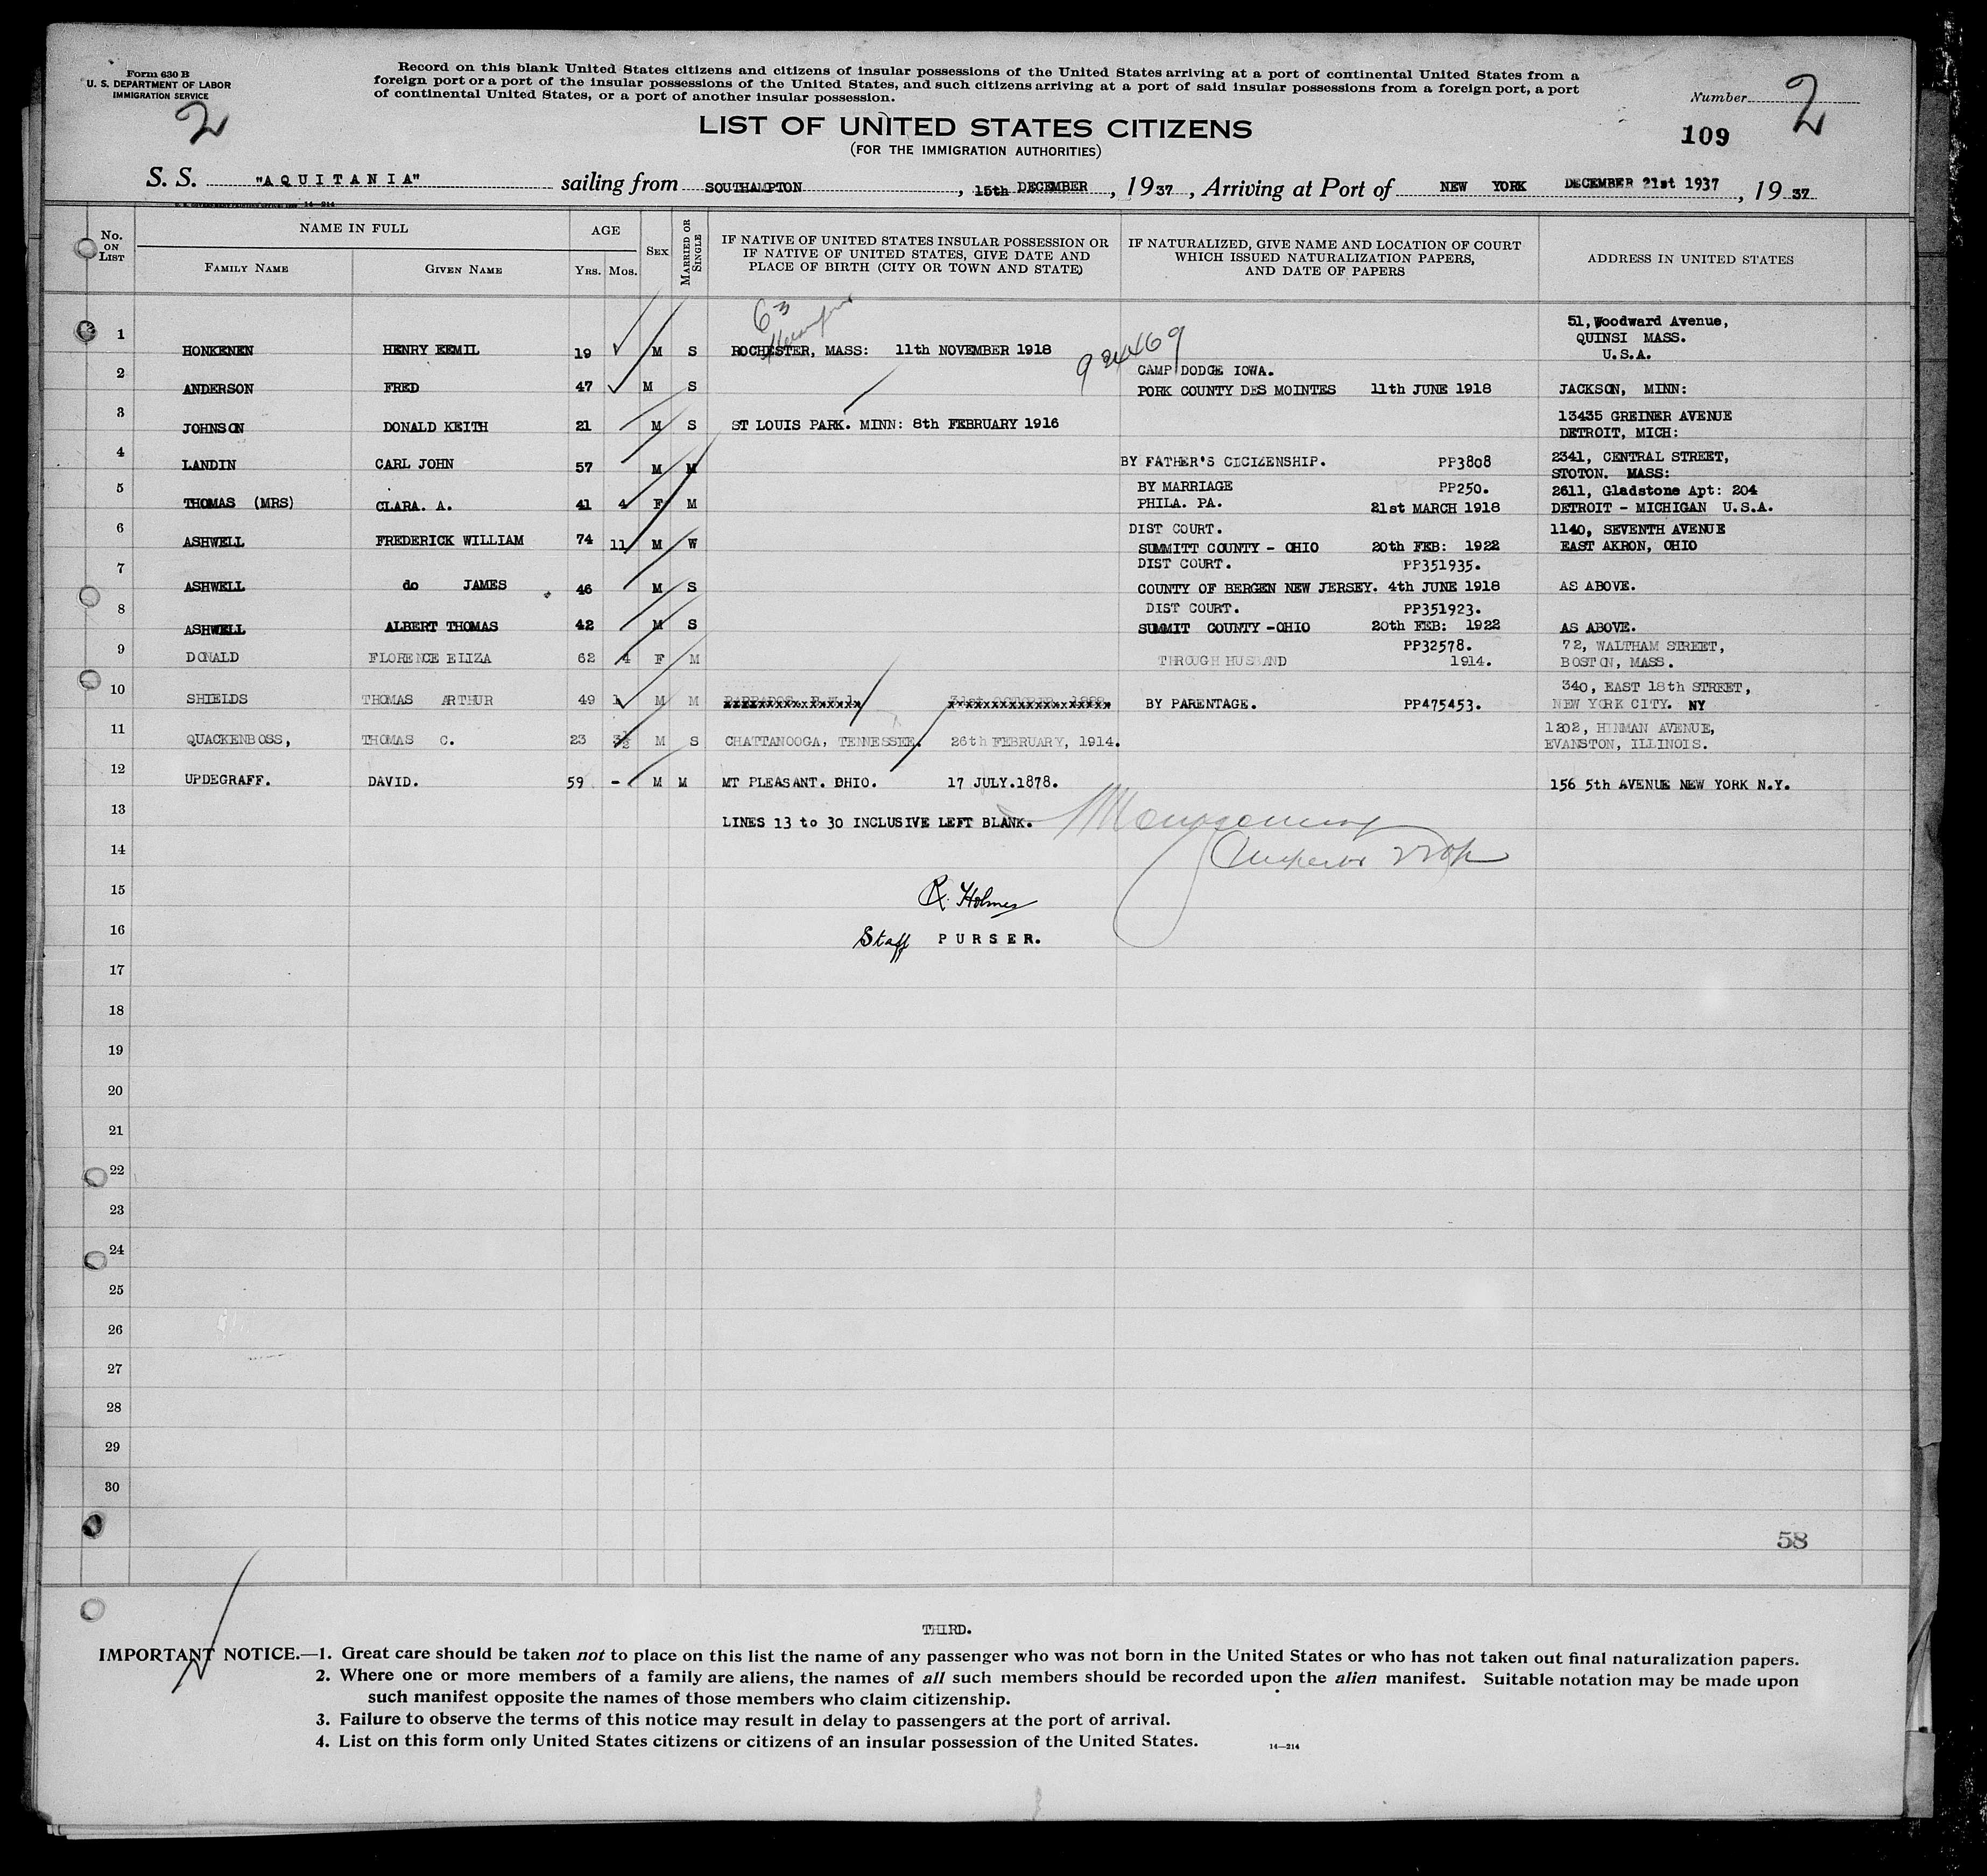 Form 630 B
U. S. DEPARTMENT OF LABOR
IMMIGRATION SERVICE
2
Record on this blank United States citizens and citizens of insular possessions of the United States arriving at a port of continental United States from a
foreign port or a port of the insular possessions of the United States, and such citizens arriving at a port of said insular possessions from a foreign port, a port
of continental United States, or a port of another insular possession.
Number 2
LIST OF UNITED STATES CITIZENS
109
(FOR THE IMMIGRATION AUTHORITIES)
S. S. "AQUITANIA" sailing from SOUTHAMPTON, 15th DECEMBER, 1937, Arriving at Port of NEW YORK DECEMBER 21st 1937, 1937
14—214
No. ON LIST
NAME IN FULL
FAMILY NAME GIVEN NAME
AGE
YRS. MOS.
SEX
MARRIED OR SINGLE
IF NATIVE OF UNITED STATES INSULAR POSSESSION OR
IF NATIVE OF UNITED STATES, GIVE DATE AND
PLACE OF BIRTH (CITY OR TOWN AND STATE)
IF NATURALIZED, GIVE NAME AND LOCATION OF COURT
WHICH ISSUED NATURALIZATION PAPERS,
AND DATE OF PAPERS
ADDRESS IN UNITED STATES
63
924469
51, Woodward Avenue,
QUINSI MASS.
1 HONKENEN HENRY EEMIL 19 M S ROCHESTER, MASS: 11th NOVEMBER 1918 U.S.A.
CAMP DODGE IOWA.
2 ANDERSON FRED 47 M S PORK COUNTY DES MOINTES 11th JUNE 1918 JACKSON, MINN:
13435 GREINER AVENUE
3 JOHNSON DONALD KEITH 21 M S ST LOUIS PARK. MINN: 8th FEBRUARY 1916 DETROIT, MICH:
4 LANDIN CARL JOHN 57 M M BY FATHER'S CICIZENSHIP. PP3808 2341, CENTRAL STREET,
STOTON. MASS:
BY MARRIAGE PP250. 2611, Gladstone Apt: 204
5 THOMAS (MRS) CLARA. A. 41 4 F M PHILA. PA. 21st MARCH 1918 DETROIT - MICHIGAN U.S.A.
DIST COURT. 1140, SEVENTH AVENUE
6 ASHWELL FREDERICK WILLIAM 74 11 M W SUMMITT COUNTY - OHIO 20th FEB: 1922 EAST AKRON, OHIO
DIST COURT. PP351935.
7 ASHWELL do JAMES 46 M S COUNTY OF BERGEN NEW JERSEY. 4th JUNE 1918 AS ABOVE.
DIST COURT. PP351923.
8 ASHWELL ALBERT THOMAS 42 M S SUMMIT COUNTY -OHIO 20th FEB: 1922 AS ABOVE.
PP32578. 72, WALTHAM STREET,
9 DONALD FLORENCE ELIZA 62 4 F M THROUGH HUSBAND 1914. BOSTON, MASS.
340, EAST 18th STREET,
10 SHIELDS THOMAS ARTHUR 49 1 M M BY PARENTAGE. PP475453. NEW YORK CITY. NY
1202, HINMAN AVENUE,
11 QUACKENBOSS, THOMAS C. 23 3½ M S CHATTANOOGA, TENNESSEE. 26th FEBRUARY, 1914. EVANSTON, ILLINOIS.
12 UPDEGRAFF. DAVID. 59 - M M MT PLEASANT. OHIO. 17 JULY.1878. 156 5th AVENUE NEW YORK N.Y.
13 LINES 13 to 30 INCLUSIVE LEFT BLANK.
14
15 R. Holmes
16 Staff PURSER.
17
18
19
20
21
22
23
24
25
26
27
28
29
30
58
THIRD.
IMPORTANT NOTICE.—1. Great care should be taken not to place on this list the name of any passenger who was not born in the United States or who has not taken out final naturalization papers.
2. Where one or more members of a family are aliens, the names of all such members should be recorded upon the alien manifest. Suitable notation may be made upon
such manifest opposite the names of those members who claim citizenship.
3. Failure to observe the terms of this notice may result in delay to passengers at the port of arrival.
4. List on this form only United States citizens or citizens of an insular possession of the United States.
14—214